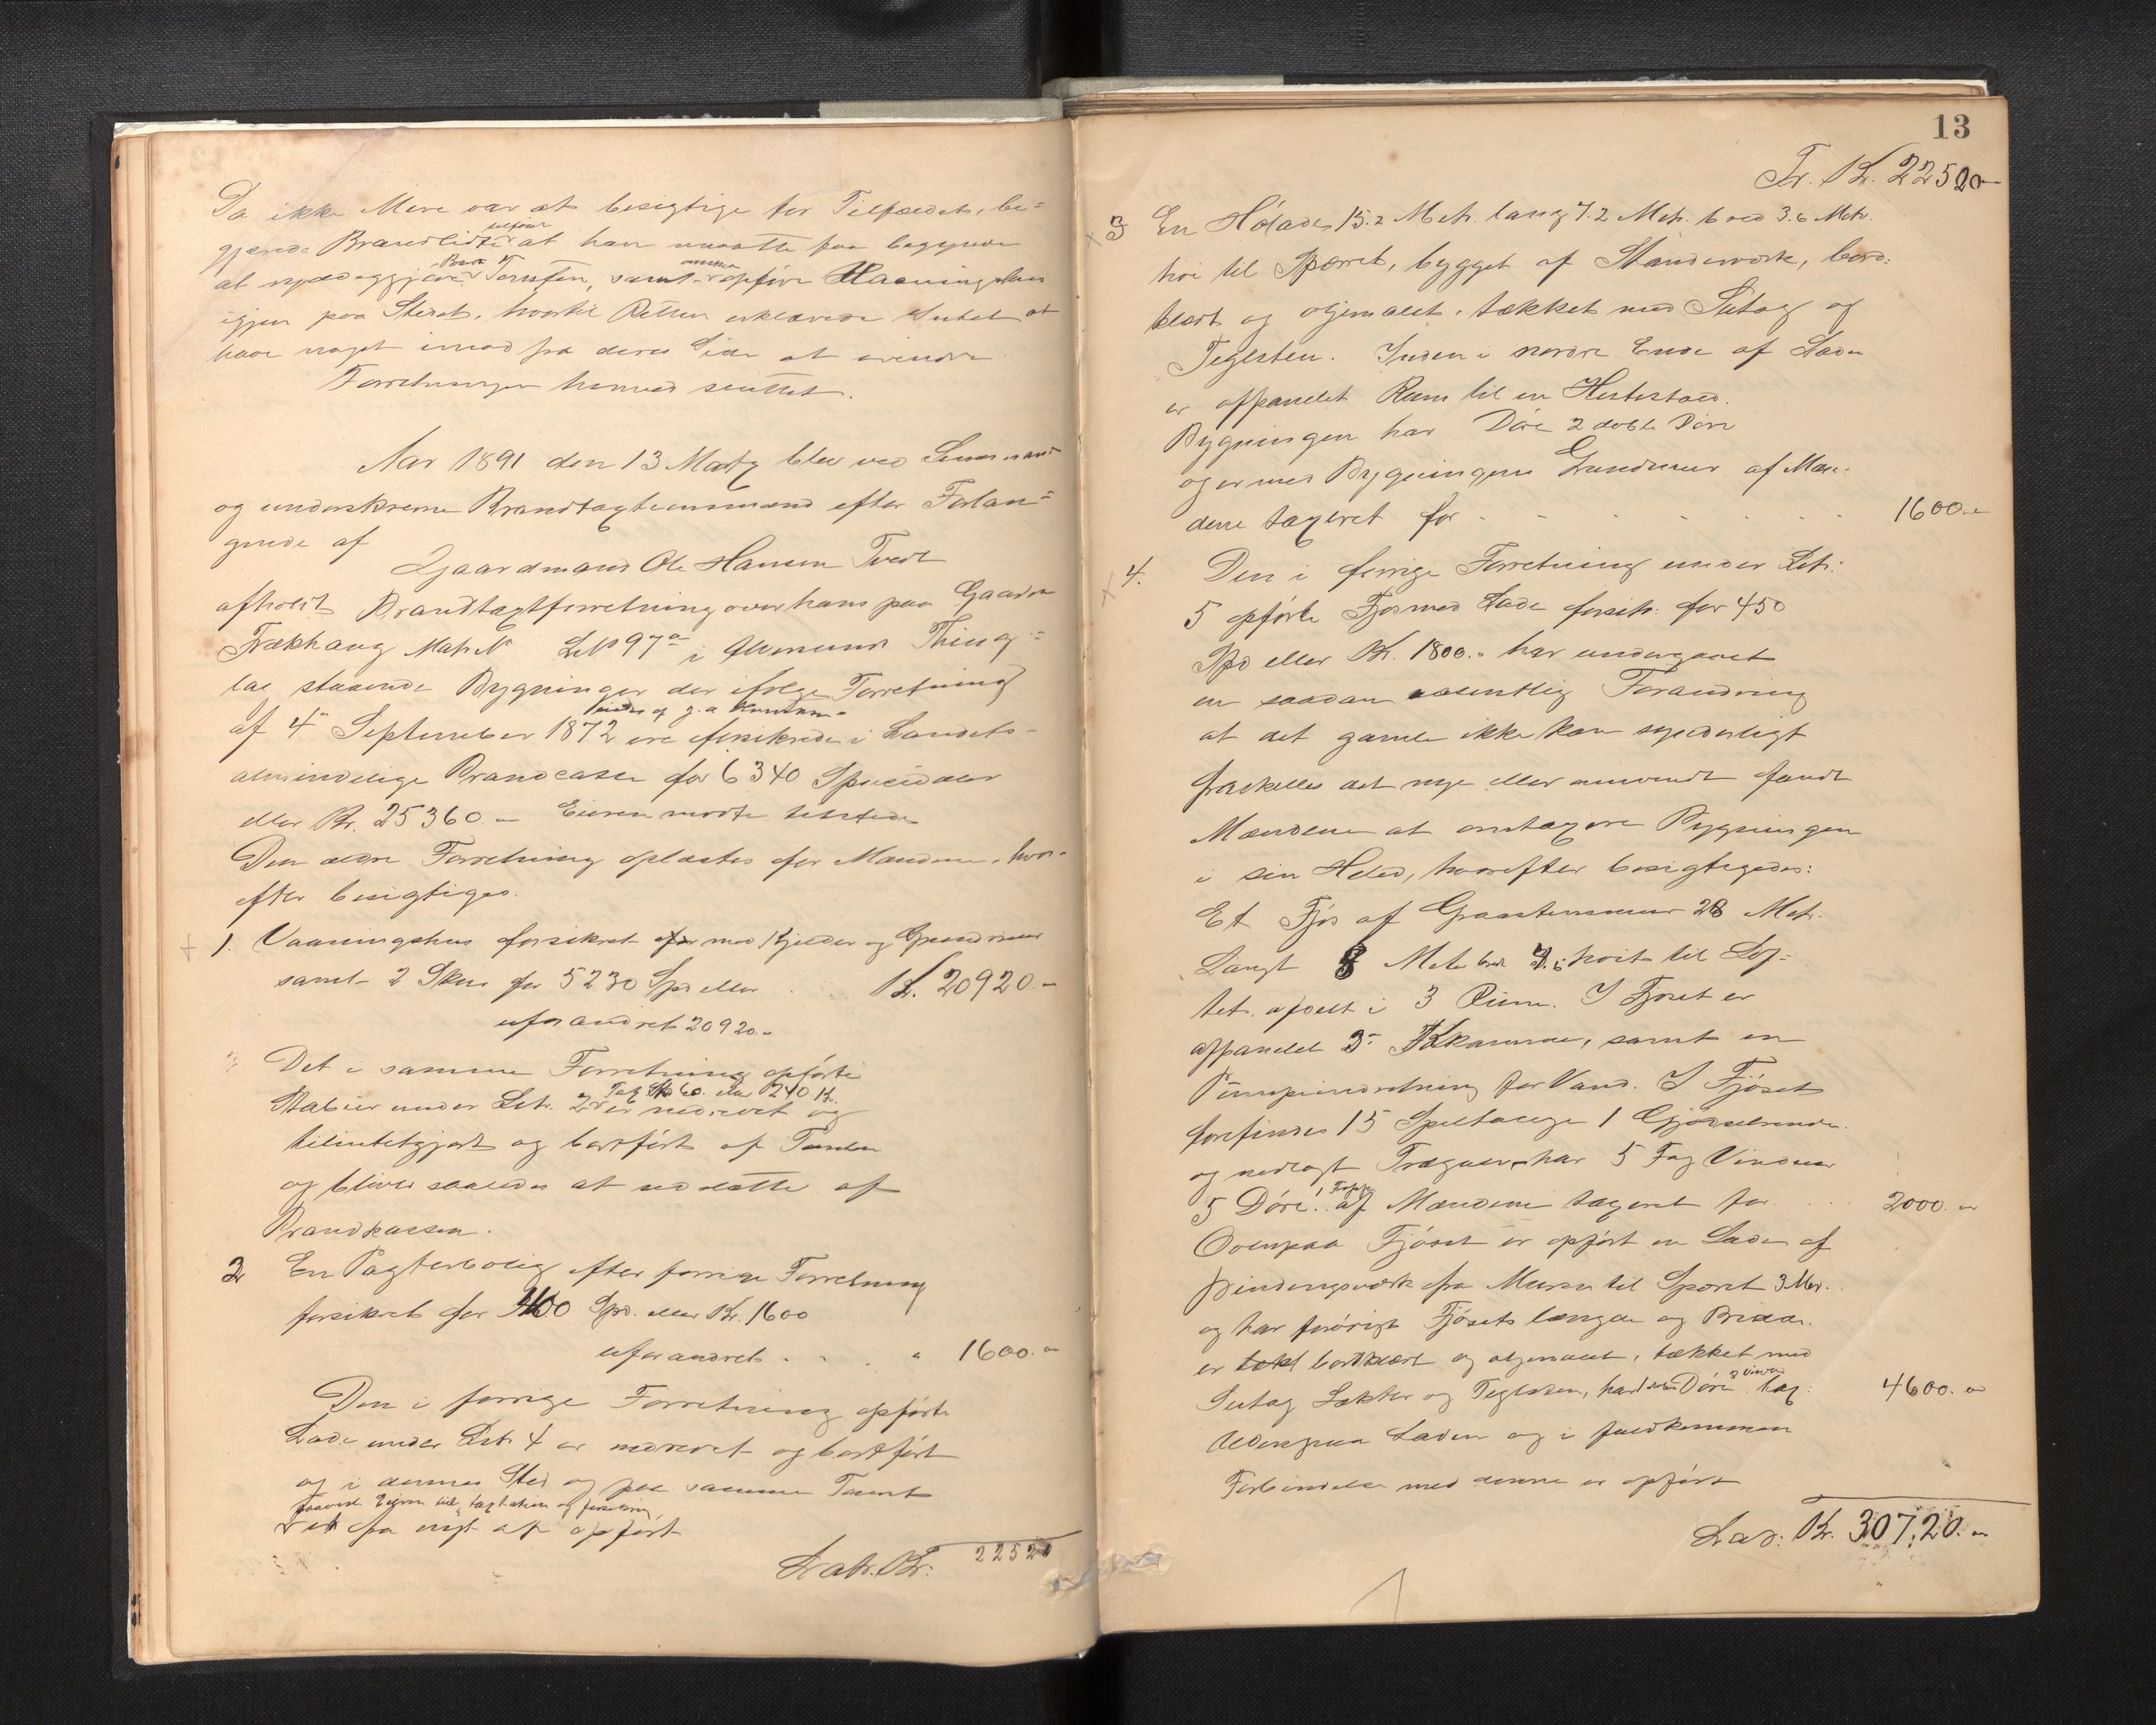 Da ikke Mere var at besigtige for Tilfældet, be-
gjærede Brandlidte tilføiet at han maatte faa begynde
at nyttiggjøre Brand Tomten, samt opføre Vaaningshus
igjen paa Stedet, hvortil Retten erklærede Intet at
have noget imod fra deres Side at erindre
Forretningen hermed sluttet.
Aar 1891 den 13 Marts blev ved Lensmand
og underskrevne Brandtaxtmænd efter Forlan-
gende af
Gaardmand Ole Hansen Tvedt
afholdt Brandtaxtforretning over hans paa Gaarden
Trækhaug Matr N LNo 97a i Thing-
lag staaende Bygninger der ifølge Forretning
af 4 September 1872 ere forsikrede i Landets
almindelige Brandcasse for 6340 Speciedaler
eller Kr. 25360.- Eieren mødte tilstede
Den ældre Forretning oplæstes for Mændene, hvor-
efter besigtiges.
1. Vaaningshus forsikret med Kjelder og Grundmur
samt 2 Skur for 5230 Spd eller Kr. 20920.-
uforandret 20920.-
Det i samme Forretning opførte
Stabur under Litr. 2 Tax Spd 60 eller 240 Kr. er nedrevet og
tilintetgjort og bortført af Tomten
og bliver saaledes at udslette af
Brandkassen.
2 En Pagterbolig efter forrige Forretning
forsikret for 400 Spd. eller Kr. 1600
uforandret . . . " 1600.-
Den i forrige Forretning opførte
Lade under Litr 4 er nedrevet og bortført
og i dennes Sted og paa samme Tomt
foreviste Eieren til taxtation og forsikring
fra nyt af opført
Latr. Kr. 22520
13
Tr. Kr. 22520-
3 En Hølade 15.2 Metr. lang 7.2 Metr. bred 3.6 Metr.
høi til Spærret, bygget af Standerværk, bord-
klædt og oljemalet, tækket med Sutag og
Teglsten. Inden i nordre Ende af Laden
er afpanelet Rum til en Hestestald.
Bygningen har Døre 2 doble Døre
og er med Bygningens Grundmur af Mæn-
dene taxeret for - - - - - 1600.-
4. Den i forrige Forretning under Litr.
5 opførte Fjøs med Lade forsikr. for 450
Spd eller Kr. 1800.- har undergaaet
en saadan væsentlig Forandring
at det gamle ikke kan synderligt
fraskilles det nye eller anvendt fandt
Mændene at omtaxere Bygningen
i sin Helhed, hvorefter besigtigedes:
Et Fjøs af Graastensmur 28 Metr.
Langt 8 Metr bred høit til Lof-
tet. afdelt i 3 Rum. I Fjøset er
afpanelet 3 samt en
Pumpeindretning for Vand. I Fjøset
forefindes 15 Spiltauge 1 Gjødselrende
og nedlagt Trægulv har 5 Fag Vinduer
5 Døre. af Mændene taxeret for . . . 2000.-
Ovenpaa Fjøset er opført en Lade af
Bindingsværk fra Muren til Spæret 3 Metr.
og har forøvrigt Fjøsets længde og Bredde.
er bordklædt og oljemalet, tækket med
Sutag Lækter og Teglsten, har Døre tax: 4600.-
Ovenpaa Laden og i fuldkommen
Forbindelse med denne er opført
Lat: Kr. 30720.-